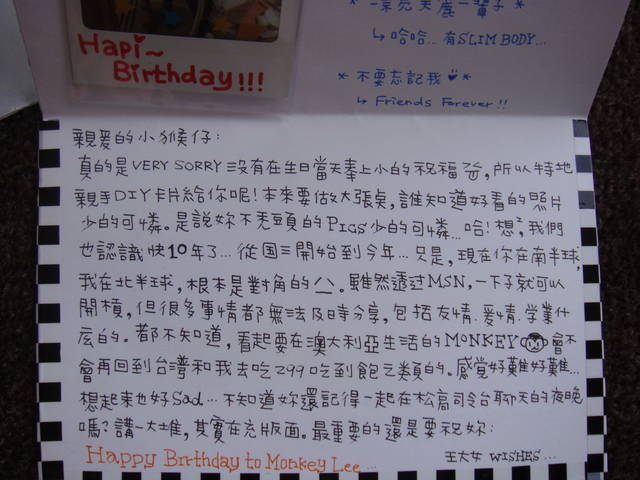 Hapi~
Birthday!!!
↳ 哈哈... 有SLIM BODY...
* 不要忘記我 *
↳ Friends Forever!!
親愛的小猴仔:
真的是VERY SORRY 沒有在生日當天奉上小的祝福, 所以特地
親手DIY卡片給你呢! 本來要做大張桌, 誰知道好看的照片
少的可憐。是說妳不禿頭的PIGS少的可憐... 哈! 想想, 我們
也認識快10年了... 從国三開始到今年... 只是, 現在你在南半球,
我在北半球, 根本是對角的ㄟ。雖然透过MSN, 一下子就可以
開槓, 但很多事情都無法及時分享, 包括友情.愛情.學業什
麼的。都不知道, 看起要在澳大利亞生活的MONKEY 會不
會再回到台灣和我去吃299吃到飽之類的。感覺好難好難...
想起來也好Sad... 不知道妳還記得一起在松高司令台聊天的夜晚
嗎? 講一大堆, 其實在充版面。最重要的還是要祝妳:
Happy Birthday to Monkey Lee...
王大女 WISHES...